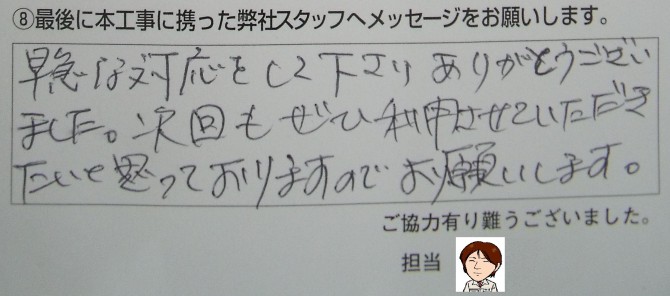 ⑧最後に本工事に携った弊社スタッフへメッセージをお願いします。
早急な対応をして下さりありがとうござい
ました。次回もぜひ利用させていただき
たいと思っておりますのでお願いします。
ご協力有り難うございました。
担当